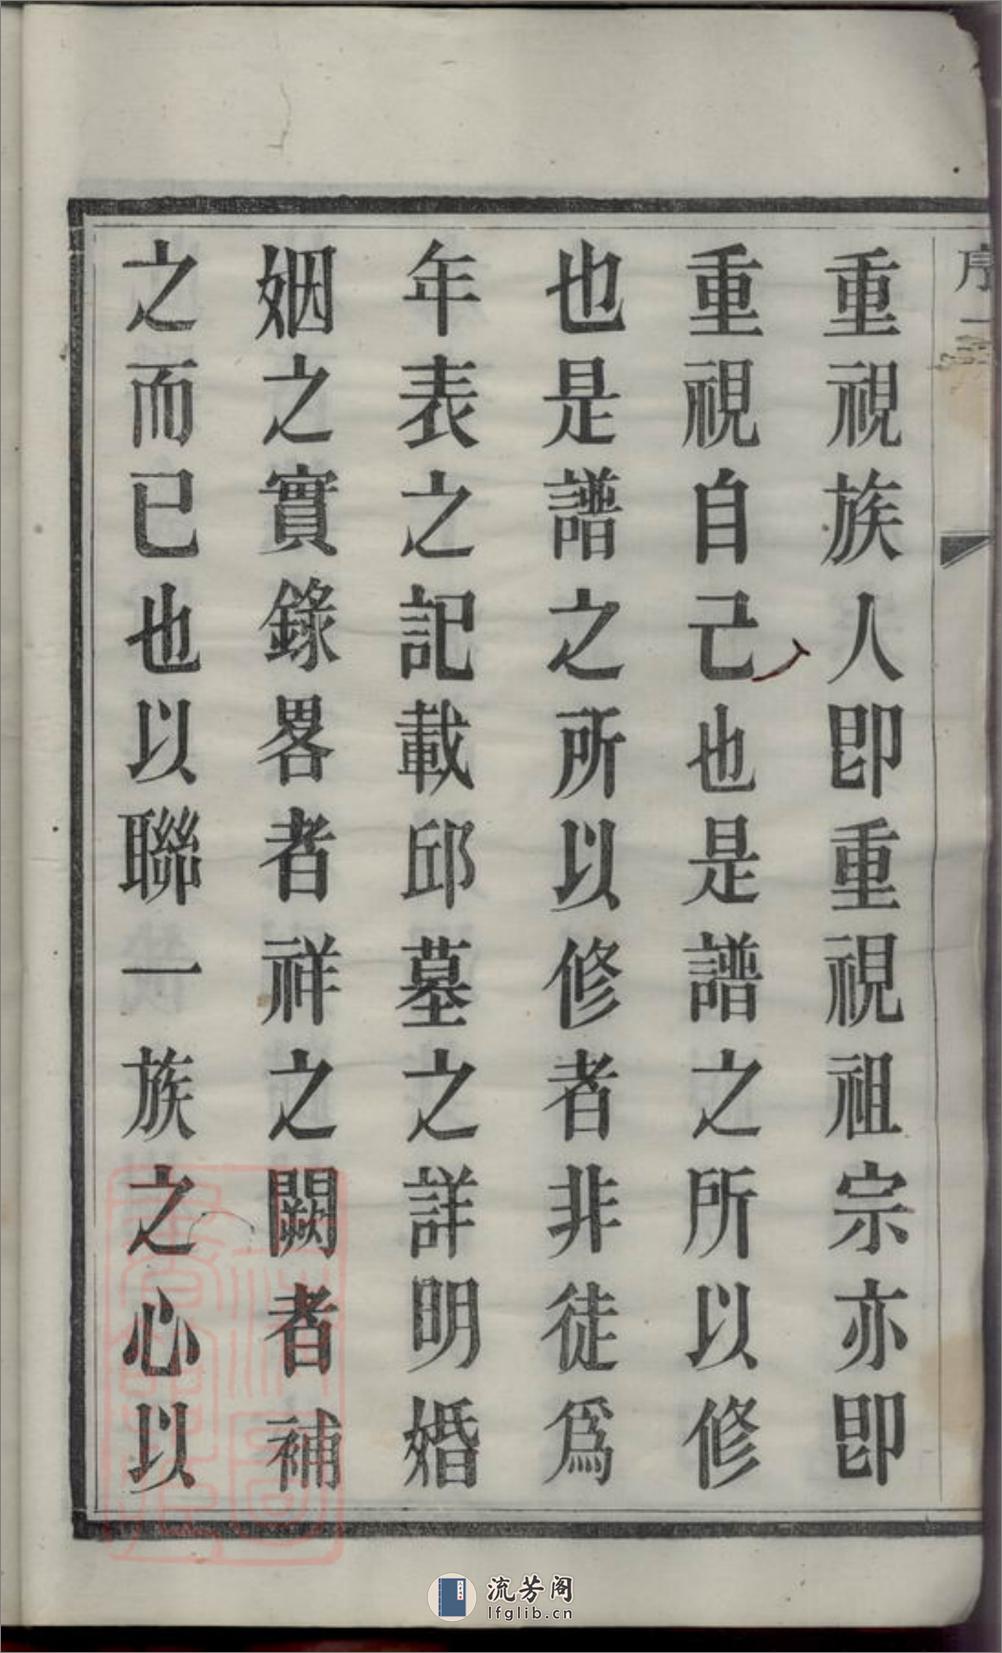 序一
重視族人即重視祖宗亦即
重視自己也是譜之所以修
也是譜之所以修者非徒爲
年表之記載邱墓之詳明婚
姻之實錄畧者祥之闕者補
之而已也以聯一族之心以
流芳阁
lfglib.cn